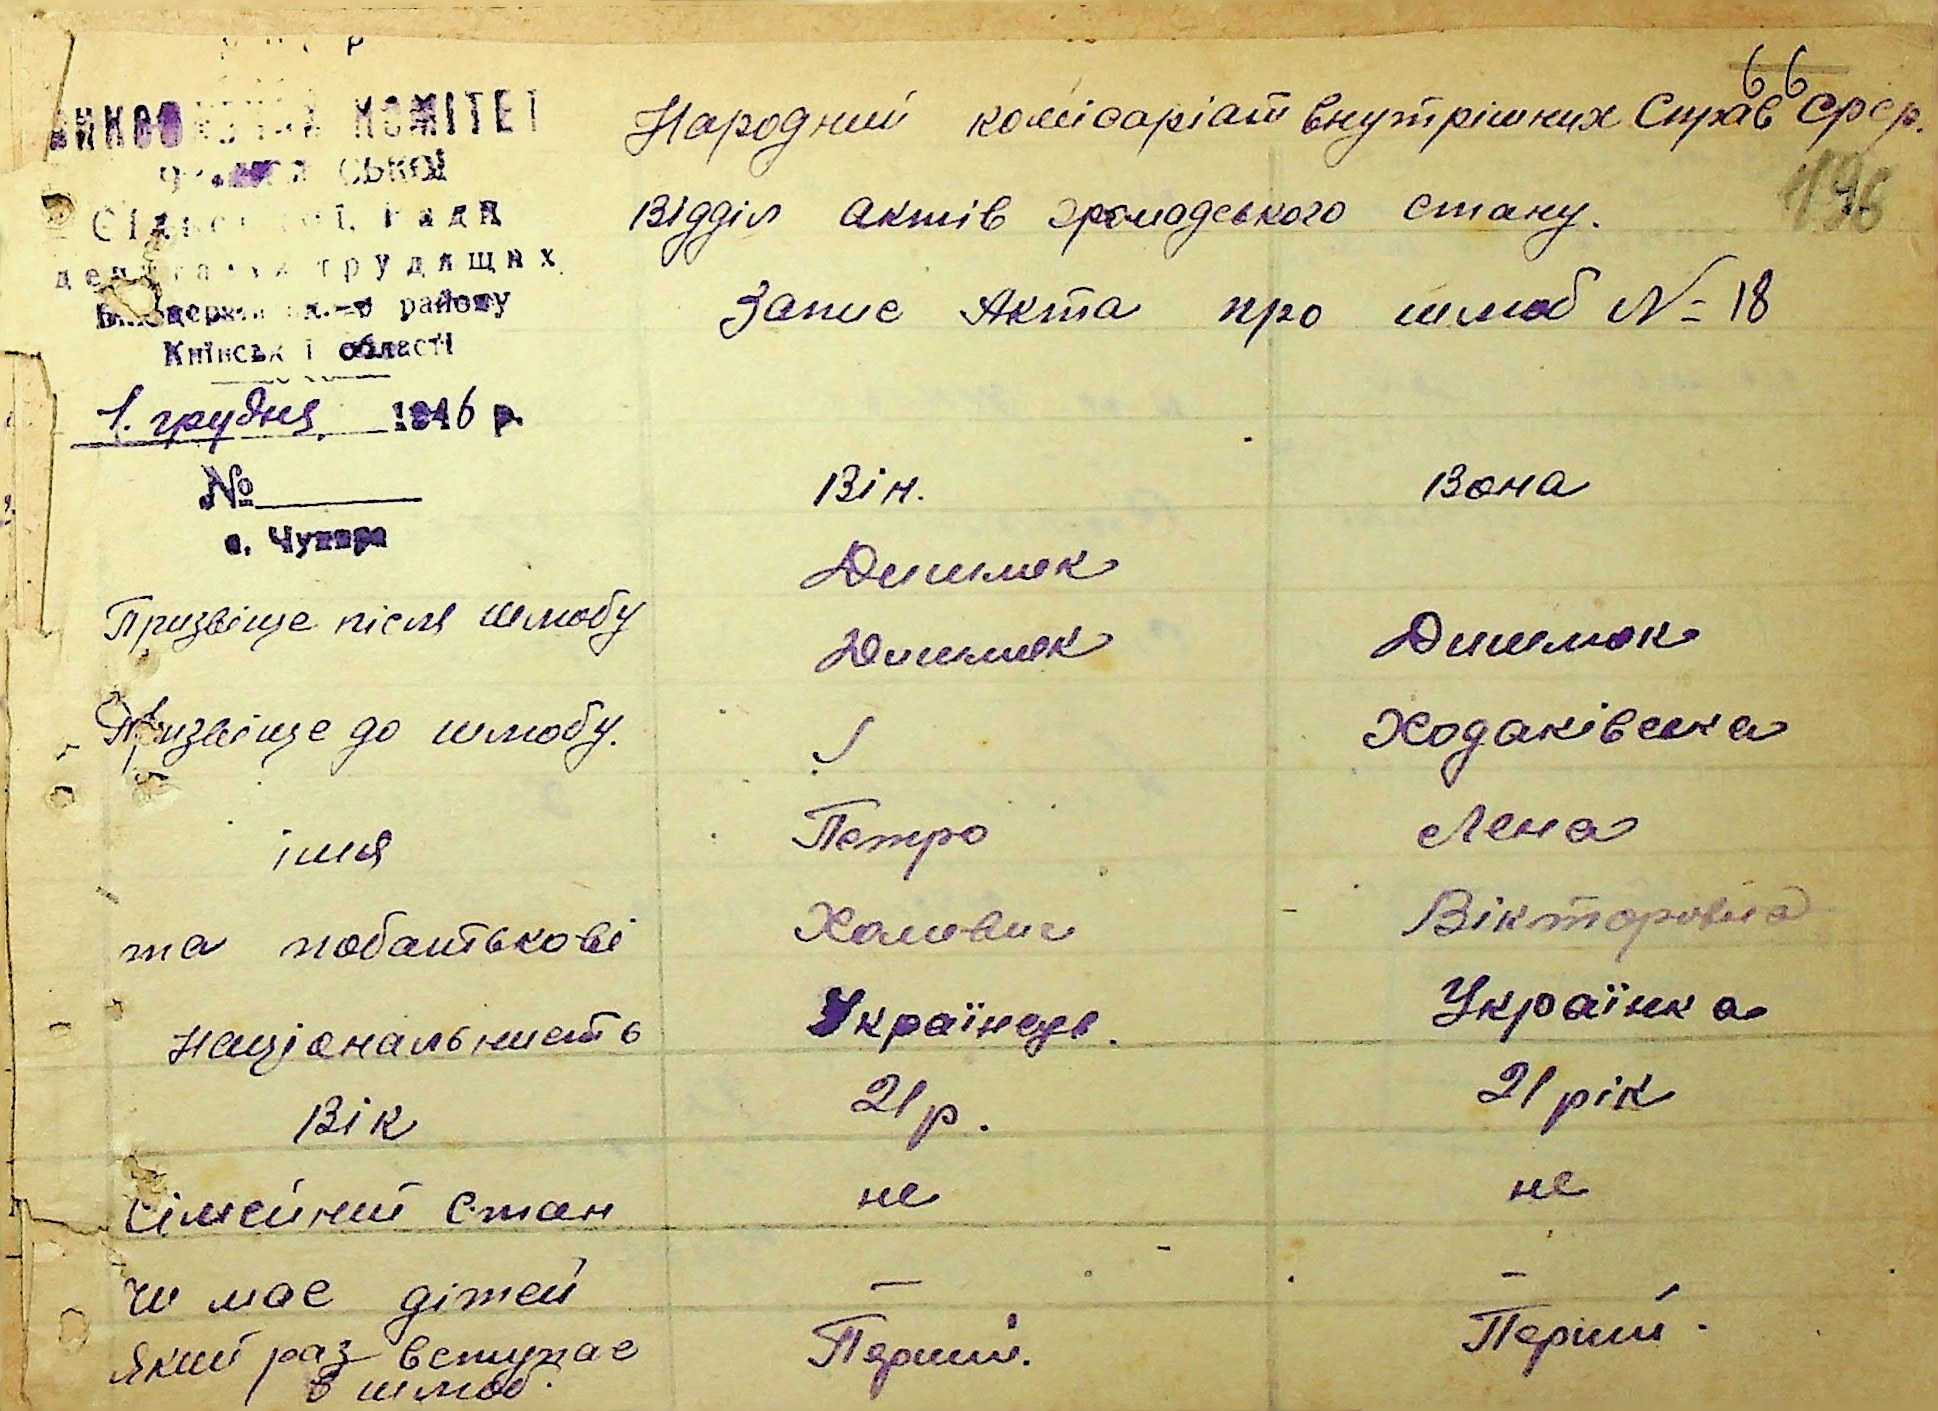 УРСР
ВИКОНАВЧИЙ КОМІТЕТ
СЬКОЇ
Сільської Ради
депутатів трудящих
Білоцерківського району
Київської області
1. грудня 1946 р.
№
с. Чупира
66
196
Народний комісаріат внутрішних Справ СРСР.
Відділ актів громадського стану.
Запис Акта про шлюб № 18
Він. Вона
Дишлюк
Призвіще після шлюбу Дишлюк Дишлюк
Призвіще до шлюбу. Ходаківська
імя Петро Лена
та побатькові Хомович Вікторовна
Національнисть Українець. Українка
Вік 21 р. 21 рік
Сімейний Стан не не
Чи має дітей — —
Який раз вступає Перший. Перший.
в шлюб.